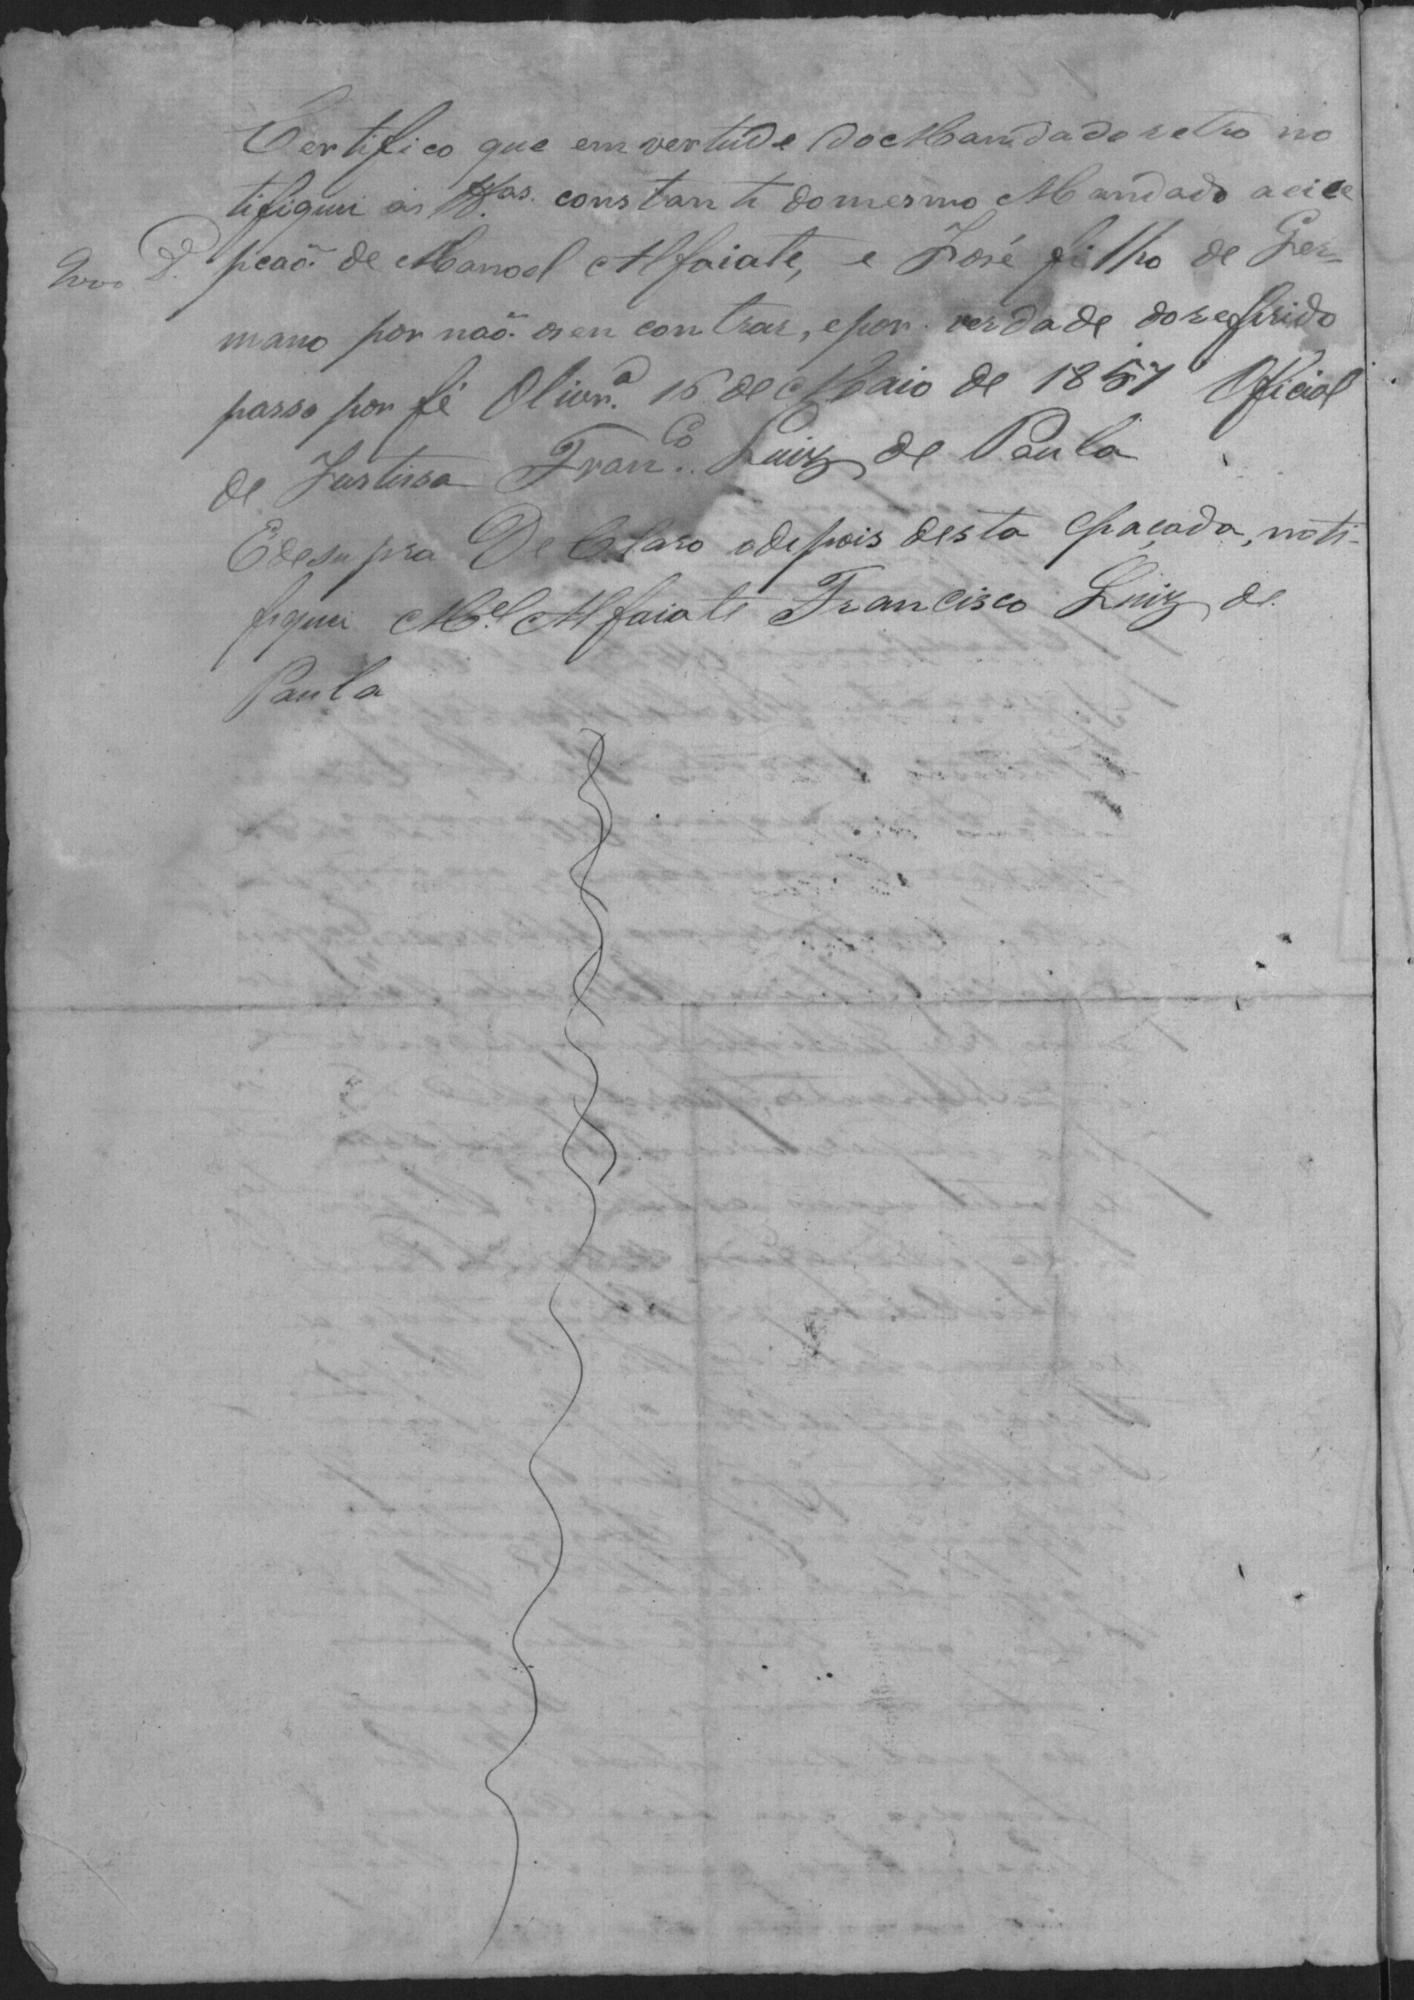 Certifico que em vertude do Mandado retro no
tifiquei as T.as constante do mesmo Mandado a eice
pcaõ de Manoel Alfaiate, e José filho de Ger=
mano por naõ os en contrar, e por verdade do refirido
passo por fé Olivr.a 16 de Maio de 1857 Oficial
de Justissa Fran.co Luiz de Paula
E de su pra De Claro a depois desta paçada, noti-
fiquei M.el Alfaiate Francisco Luiz de
Paula